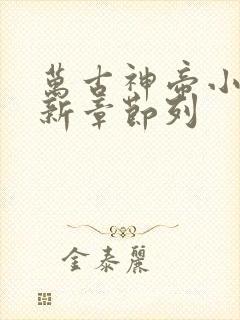 萬古神帝小
新章節列
金泰麗